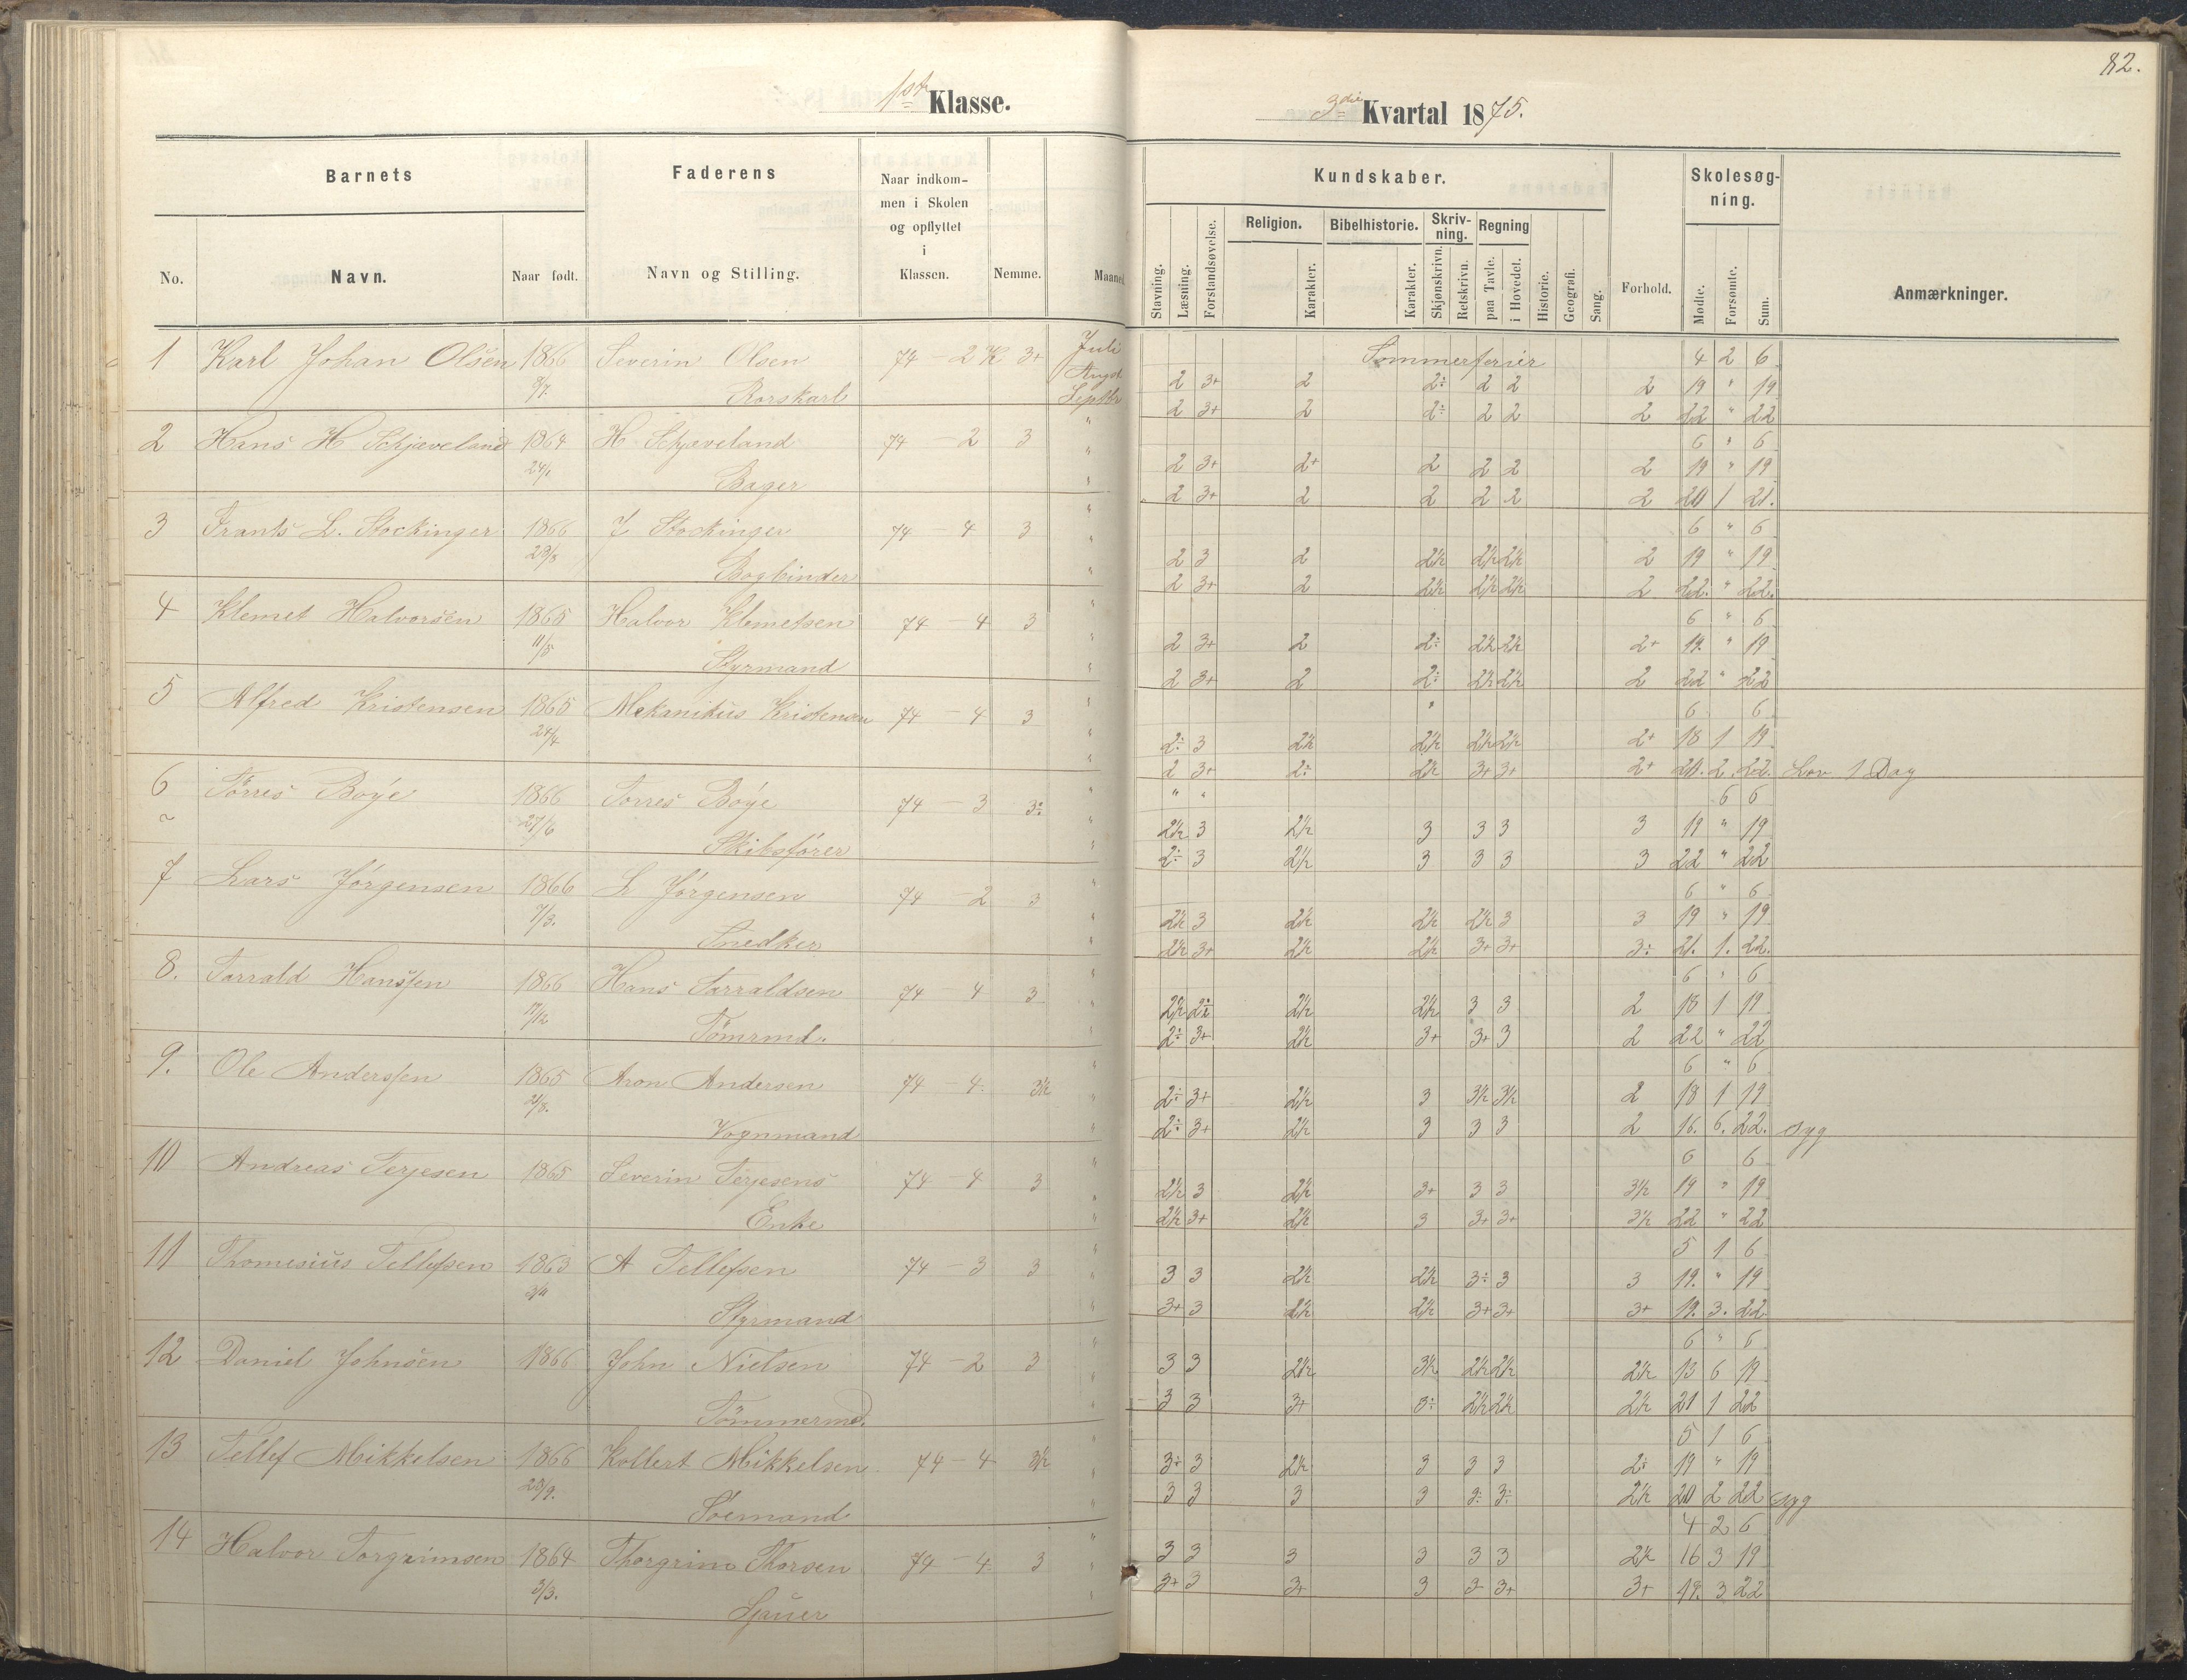 82.
1ste Klasse.
3die Kvartal 1875.
Barnets
Faderens
Naar indkom-
men i Skolen
og opflyttet
i
Klassen.
Nemme.
Maaned
No.
Navn.
Naar født.
Navn og Stilling.
Kundskaber.
Skolesøg-
ning.
Religion.
Bibelhistorie.
Skriv-
ning.
Regning
Stavning.
Læsning.
Forstandsøvelse.
Karakter.
Karakter.
Skjønskrivn.
Retskrivn.
paa Tavle.
i Hovedet.
Historie.
Geografi.
Sang.
Forhold.
Mødte.
Forsømte.
Sum.
Anmærkninger.
1 Karl Johan Olsen 1866 Severin Olsen 74 - 2 K 3+ Juli Sommerferier 4 2 6
8/7. Rorskarl Augst 2 3+ 2 2÷ 2 2 2 19 " 19
Septbr 2 3+ 2 2÷ 2 2 2 22 " 22
2 Hans H Schjæveland 1864 H Schjæveland 74 - 2 3 " 6 " 6
24/1 Bager " 2 3+ 2+ 2 2 2 2 19 " 19
" 2 3+ 2 2 2 2 2 20 1 21.
3 Frants L. Stockinger 1866 J Stockinger 74 - 4 3 " 6 " 6
Bogbinder " 2 3 2 2½ 2½ 2½ 2 19 " 19
" 2 3+ 2 2½ 2½ 2½ 2 22. " 22.
4 Klemet Halvorsen 1865 Halvor Klemetsen 74 - 4 3 " 6 " 6
11/8 Styrmand " 2 3+ 2 2÷ 2½ 2½ 2+ 19. " 19
" 2 3+ 2 2÷ 2½ 2½ 2 22 " 22
5 Alfred Kristensen 1865 Mekanikus Kristensen 74 - 4 3 " 6 6
24/4 " 2÷ 3 2½ 2½ 2½ 2½ 2+ 18 1 19
" 2 3+ 2÷ 2½ 3+ 3+ 2+ 20. 2. 22. Lov 1 Dag
6 Törres Boÿe 1866 Torres Boÿe 74 - 3 3÷ " " " 6 6
27/6 Skibsfører " 2½ 3 2½ 3 3 3 3 19 " 19
" 2÷ 3 2½ 3 3 3 3 22 " 22
7 Lars Jørgensen 1866 L Jørgensen 74 - 2 3 " 6 " 6
7/3. Snedker " 2½ 3 2½ 2½ 2½ 3 3 19 " 19
" 2½ 3+ 2½ 2½ 3+ 3+ 3÷ 21. 1. 22.
8. Tarrald Hanssen 1866 Hans Tarraldsen 74 - 4 3 " 6 " 6
17/12 Tömrmd. " 2½ 2÷ 2½ 2½ 3 3 2 18 1 19
" 2÷ 3+ 2½ 3+ 3+ 3 2 22 " 22
9. Ole Anderssen 1865 Aron Andersen 74 - 4. 3½ " 6 " 6
Vognmand " 2÷ 3+ 2½ 3 3½ 3½ 2 18 1 19
" 2÷ 3+ 2½ 3 3 3 2 16. 6. 22. syg
10 Andreas Terjesen 1865 Severin Terjesens 74 - 4 3 " 6 6
Enke " 2½ 3 2½ 3+ 3 3 3½ 19 " 19
" 2½ 3+ 2½ 3 3+ 3+ 3½ 22 " 22
11 Thomesius Tellefsen 1863 A Tellefsen 74 - 3 3 " 5 1 6
Styrmand " 3 3 2½ 2½ 3÷ 3 3 19. " 19
" 3+ 3 2½ 2½ 3+ 3+ 3+ 19. 3. 22
12 Daniel Johnsen 1866 John Nielsen 74 - 2 3 " 6 " 6
Tömmermd. " 3 3 2½ 3½ 2½ 2½ 2½ 13 6 19
" 3 3 3+ 3÷ 2½ 2½ 2½ 21 1 22
13 Tellef Mikkelsen 1866 Kollert Mikkelsen 74 - 4 3½ " 5 1 6
Söemand " 3÷ 3 2½ 3 3 3 2÷ 19 " 19
" 3 3 3 3 3÷ 3÷ 2½ 20 2 22 syg
14 Halvor Torgrimsen 1864 Thorgrim Thorsen 74 - 4. 3 " 4 2 6
3/3. " 3 3 3 3 3 3 2½ 16 3 19
" 3+ 3 3+ 3 3 3+ 3+ 19. 3 22